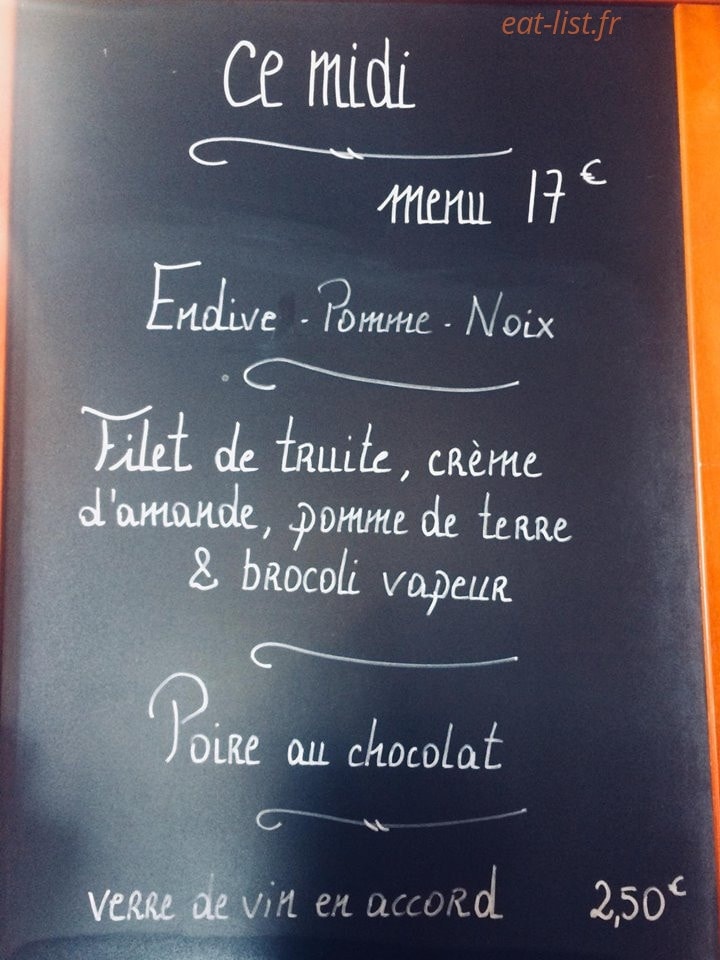 eat-list.fr
Ce midi
menu 17€
Endive - Pomme - Noix
Filet de truite, crème
d'amande, pomme de terre
& brocoli vapeur
Poire au chocolat
verre de vin en accord 2,50€